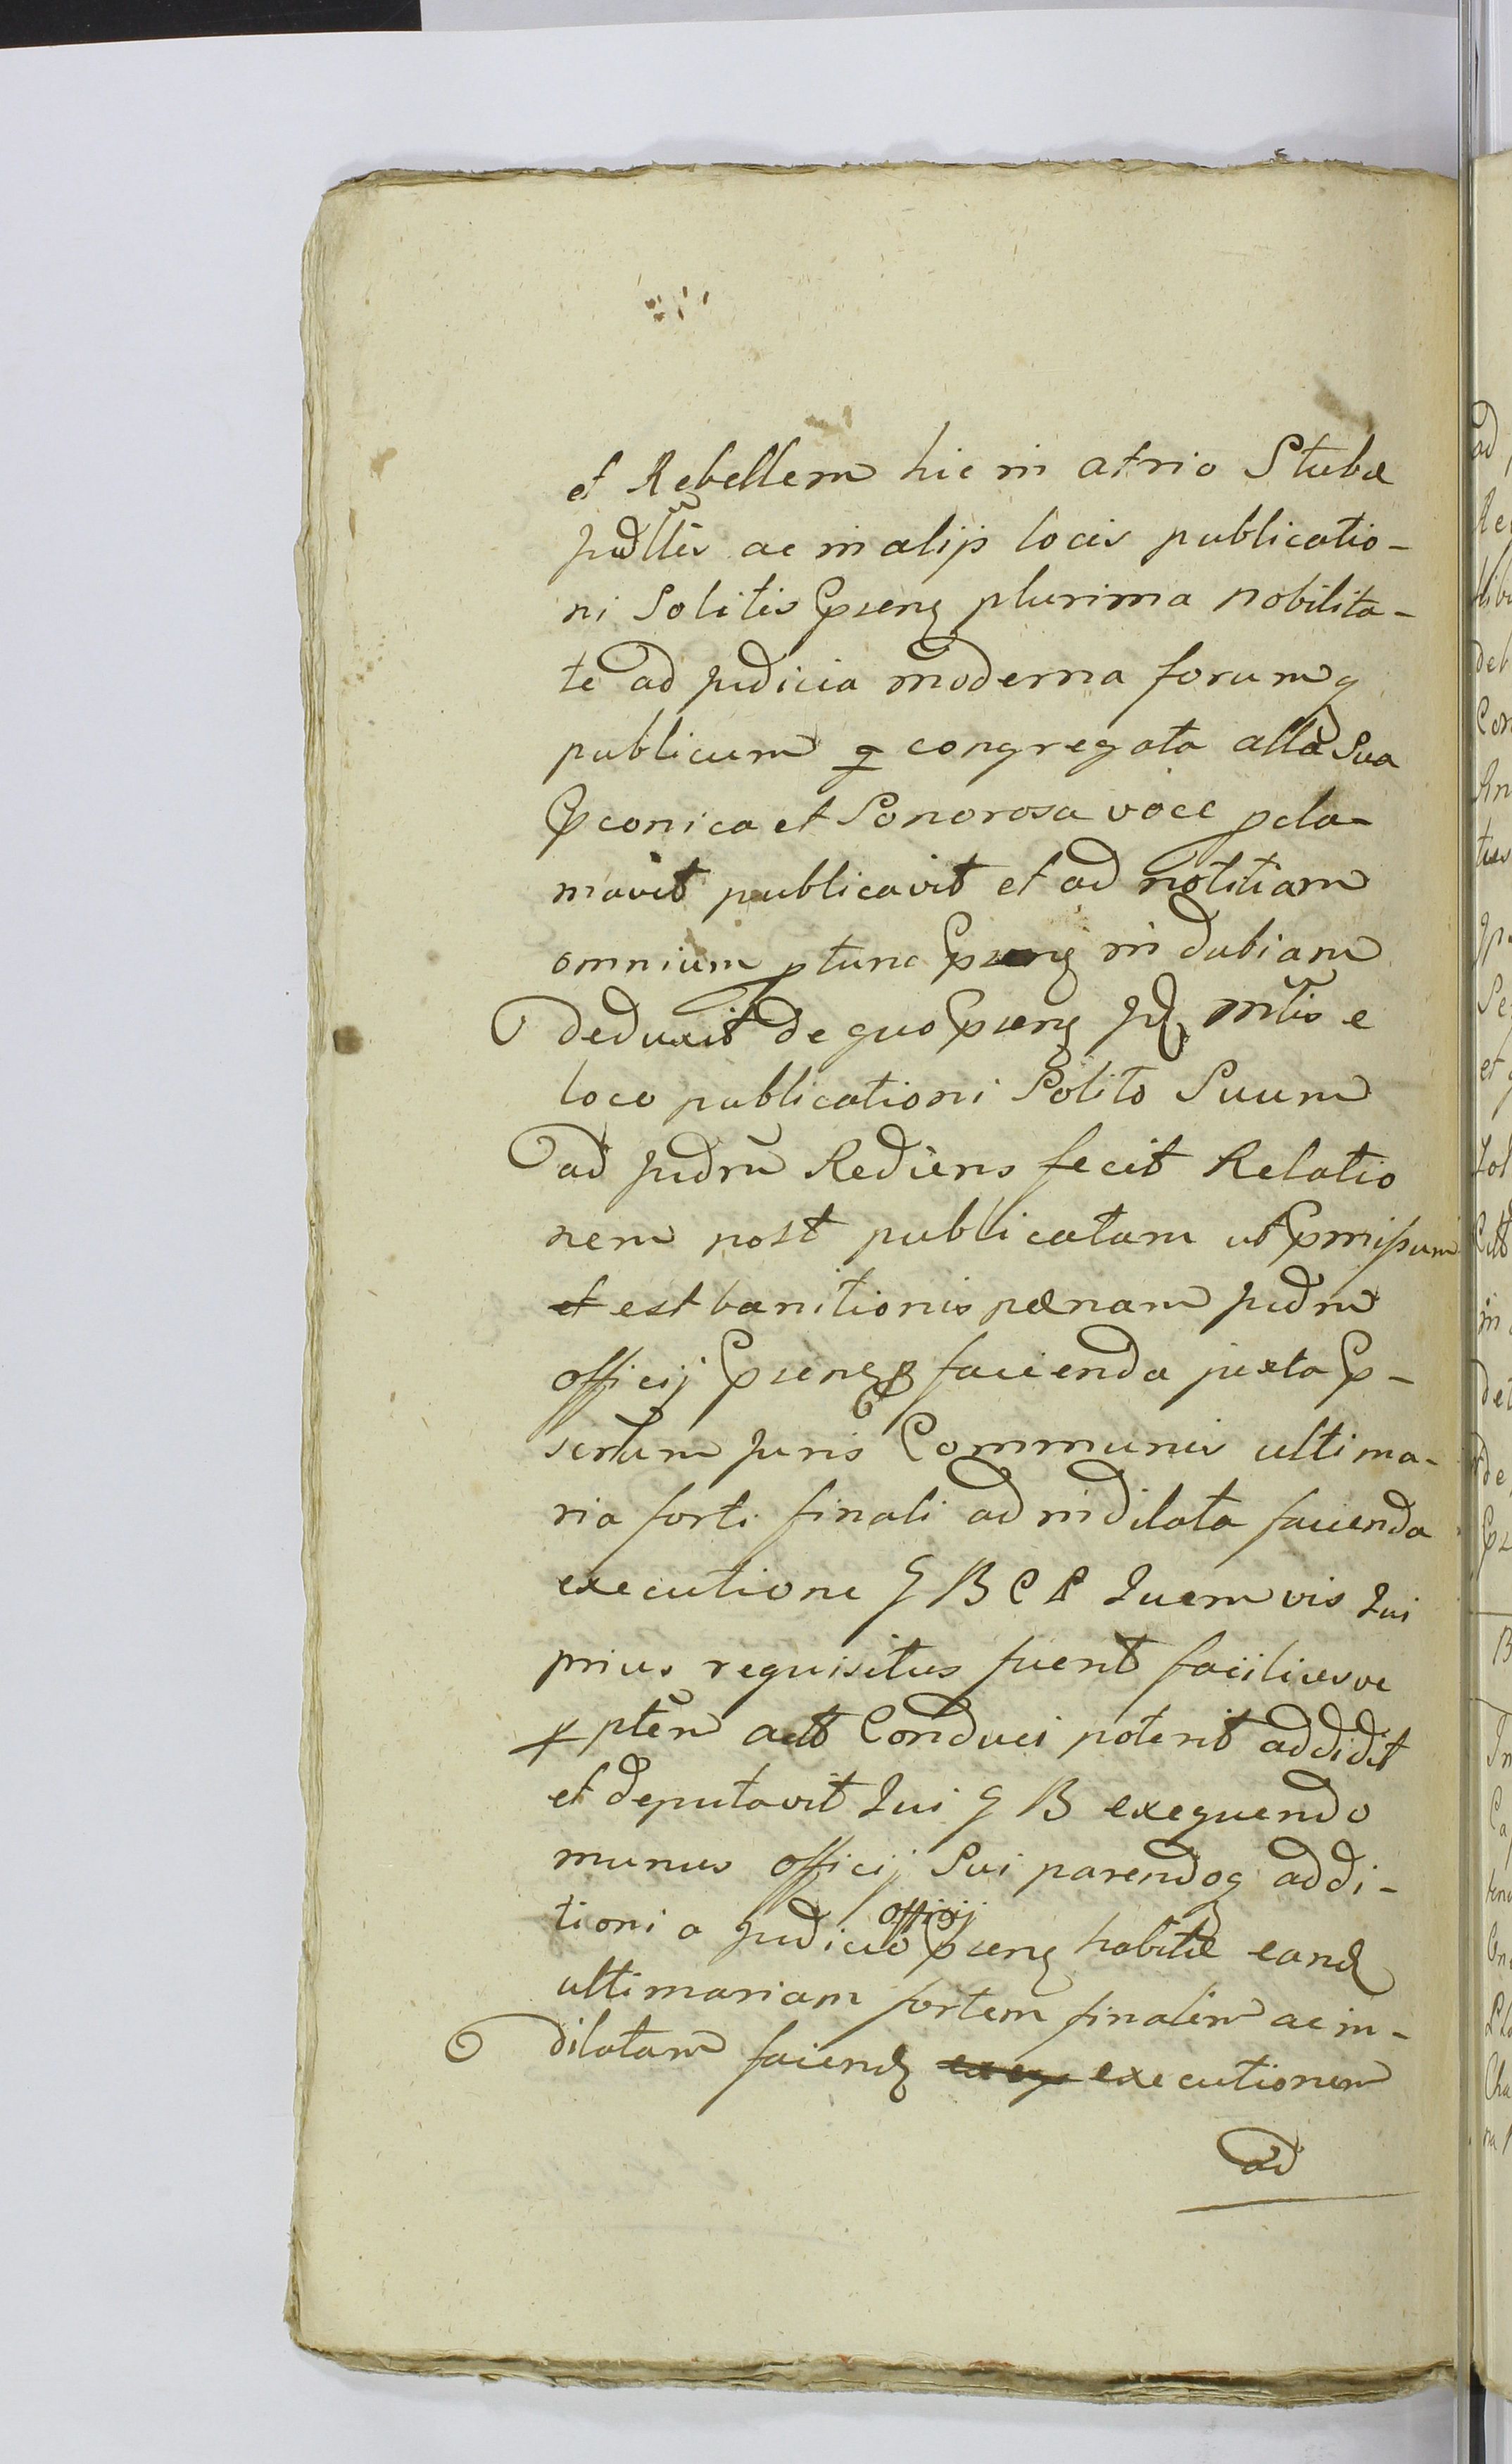 et Rebellem hic in atrio Stubæ
Judllis ac in alijs locis publicatio-
ni Solitis Psenq plurima nobilita-
te ad Judicia moderna forumq
publicum q congregata alta Sua
Pconica et Sonorosa voce pcla-
mavit publicavit et ad notitiam
omnium ptunc Psenq indubiam
deduxit de quo Psenq Jd Mtlis e
loco publicationi Solito Suum
ad Judm Rediens fecit Relatio
nem post publicatam ut Pmissum
et est banitionis pænam Judm
officij Psenq p facienda juxta P-
scrtum Juris Communis ultima-
ria forti finali ad indilata facienda
executione G B C R Quemvis Qui
prius requisitus fuerit faciliusve
x ptem act Conduci poterit addidit
et deputavit Qui G B exequendo
munus officij Sui parendoq addi-
tioni a Judicio officij Psenq habitæ eand
ultimariam fortem finalem ac in-
dilatam faciend exeq executionem
ad